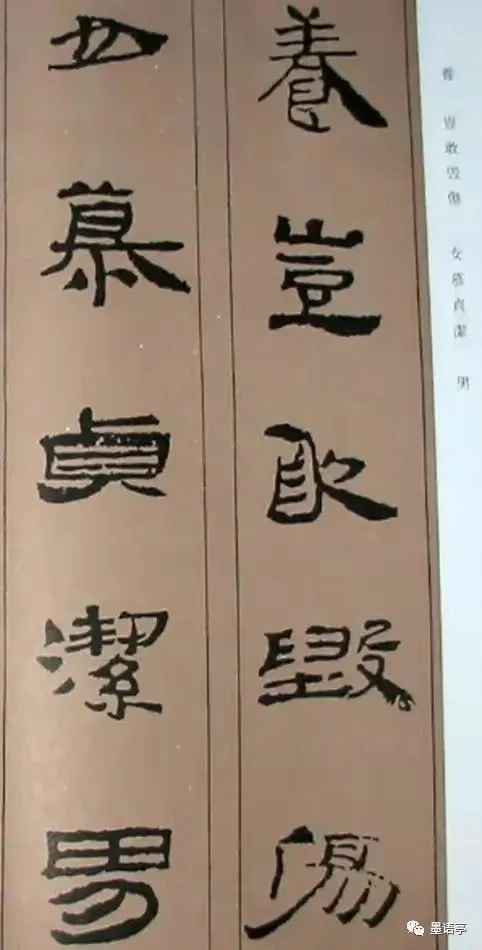 養豈敢毀傷
女慕貞潔男
養 豈敢毀傷 女慕貞潔 男
墨语亭